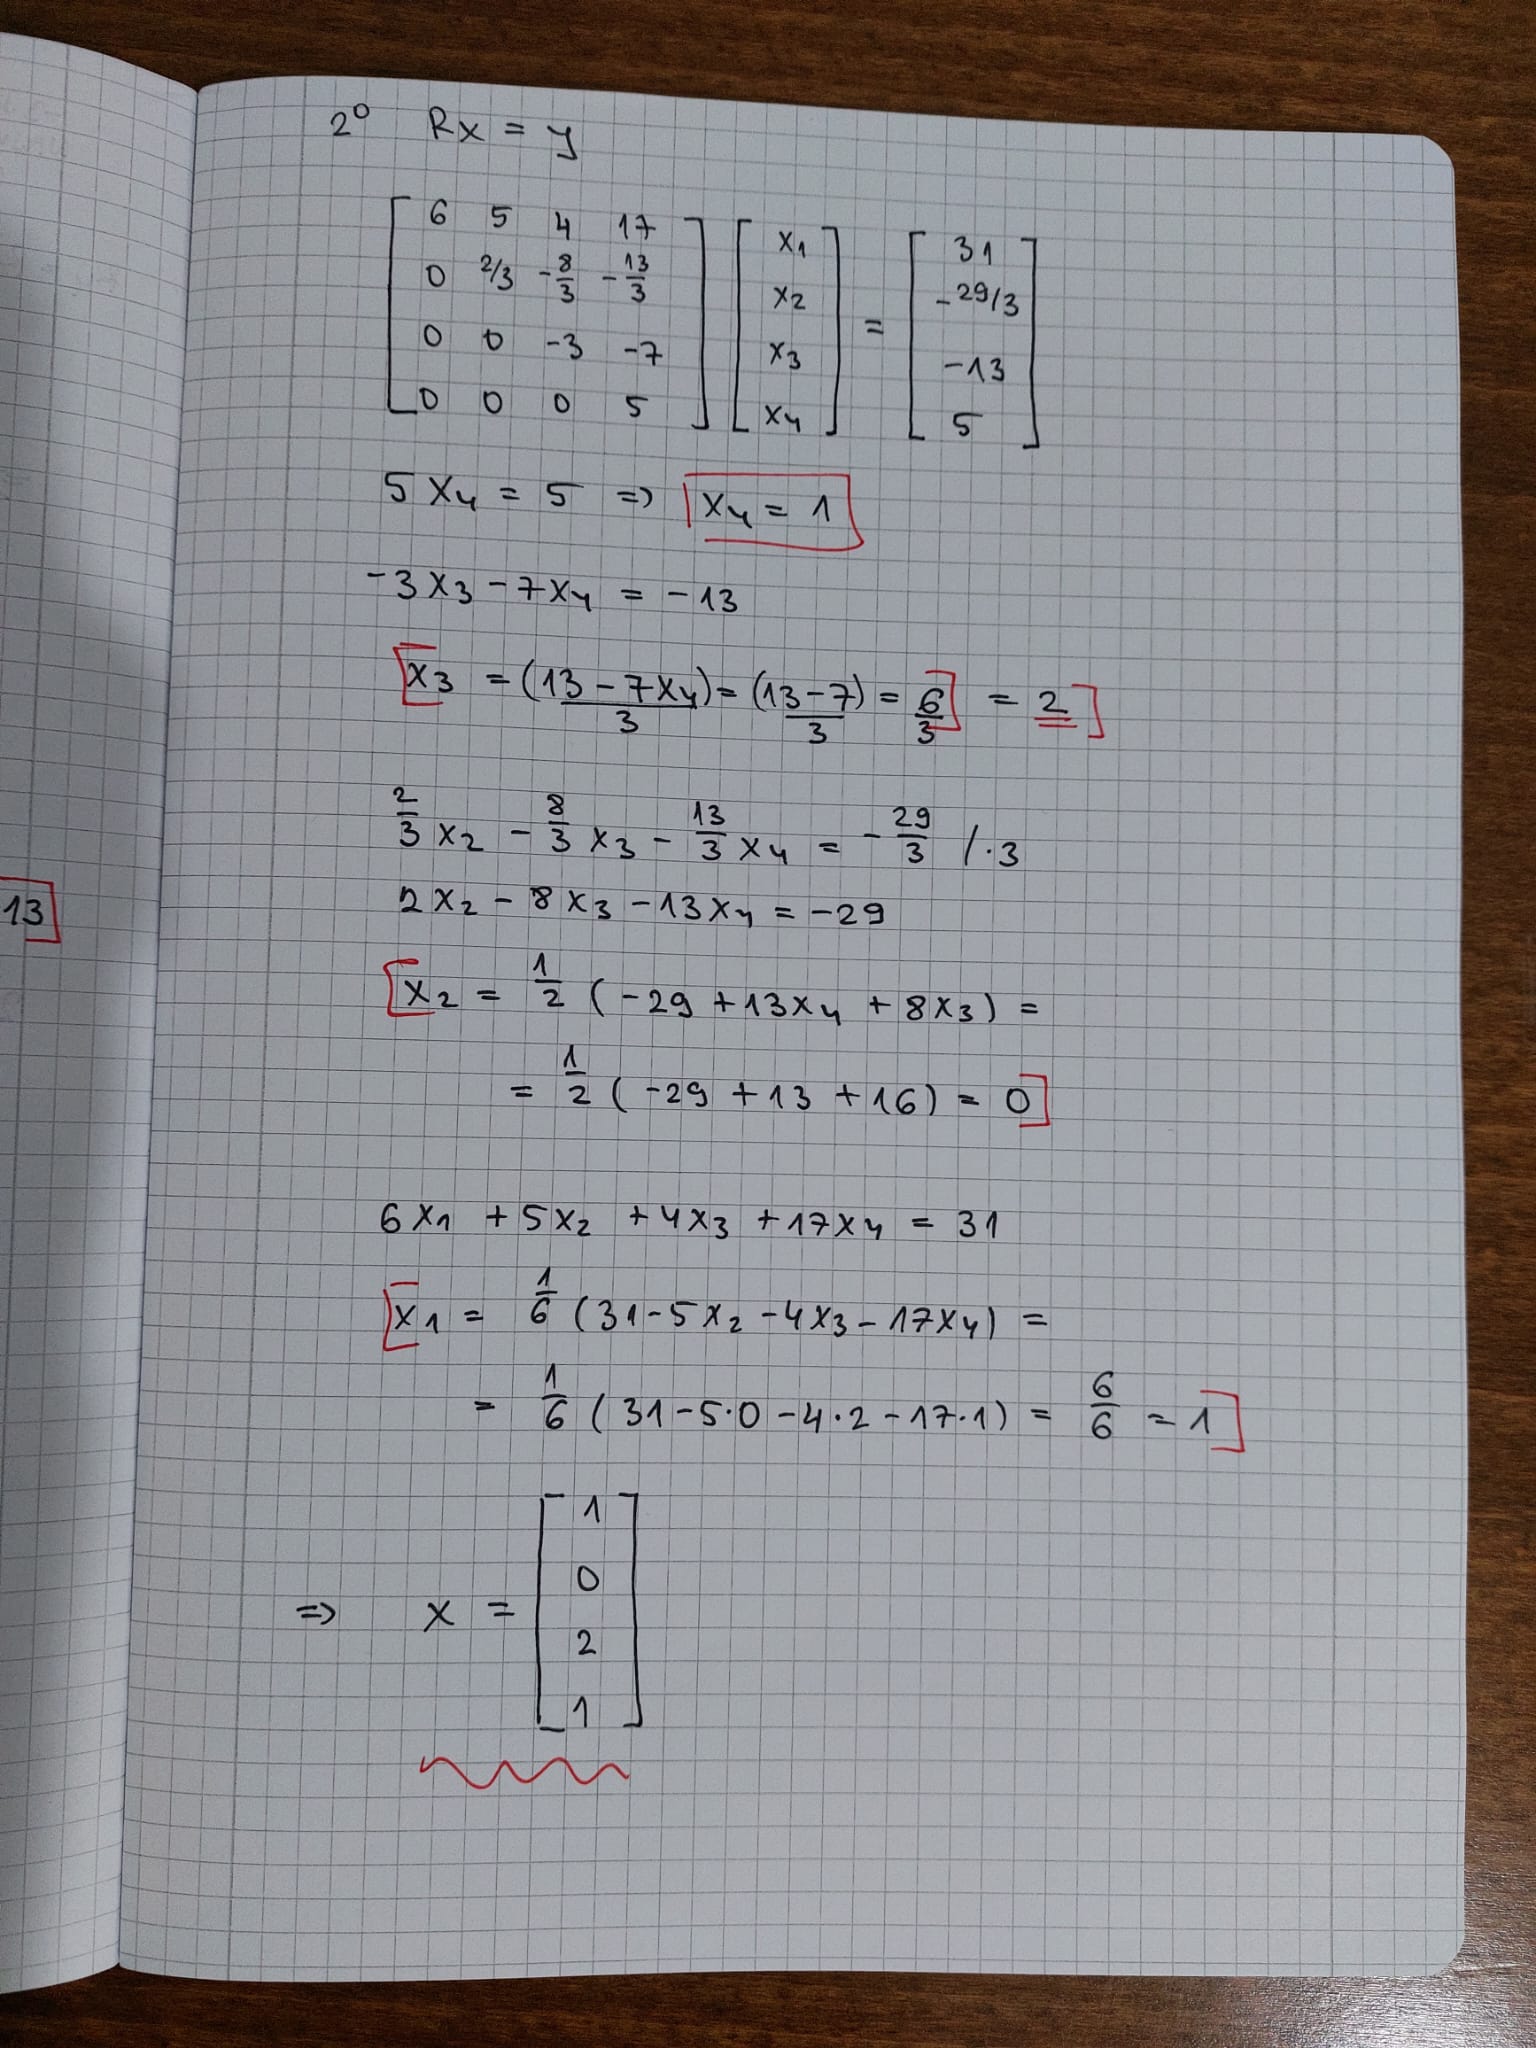 2° Rx = y
[ 6 5 4 17 ] [ x1 ] = [ 31 ]
[ 0 2/3 -8/3 -13/3 ] [ x2 ] [ -29/3 ]
[ 0 0 -3 -7 ] [ x3 ] [ -13 ]
[ 0 0 0 5 ] [ x4 ] [ 5 ]
5x4 = 5 => x4 = 1
-3x3 - 7x4 = -13
[x3 = (13-7x4)/3 = (13-7)/3 = 6/3] = 2]
2/3 x2 - 8/3 x3 - 13/3 x4 = -29/3 /·3
2x2 - 8x3 - 13x4 = -29
13]
[x2 = 1/2 (-29 + 13x4 + 8x3) =
= 1/2 (-29 + 13 + 16) = 0]
6x1 + 5x2 + 4x3 + 17x4 = 31
[x1 = 1/6 (31 - 5x2 - 4x3 - 17x4) =
= 1/6 (31 - 5·0 - 4·2 - 17·1) = 6/6 = 1]
=> x = [ 1
0
2
1 ]